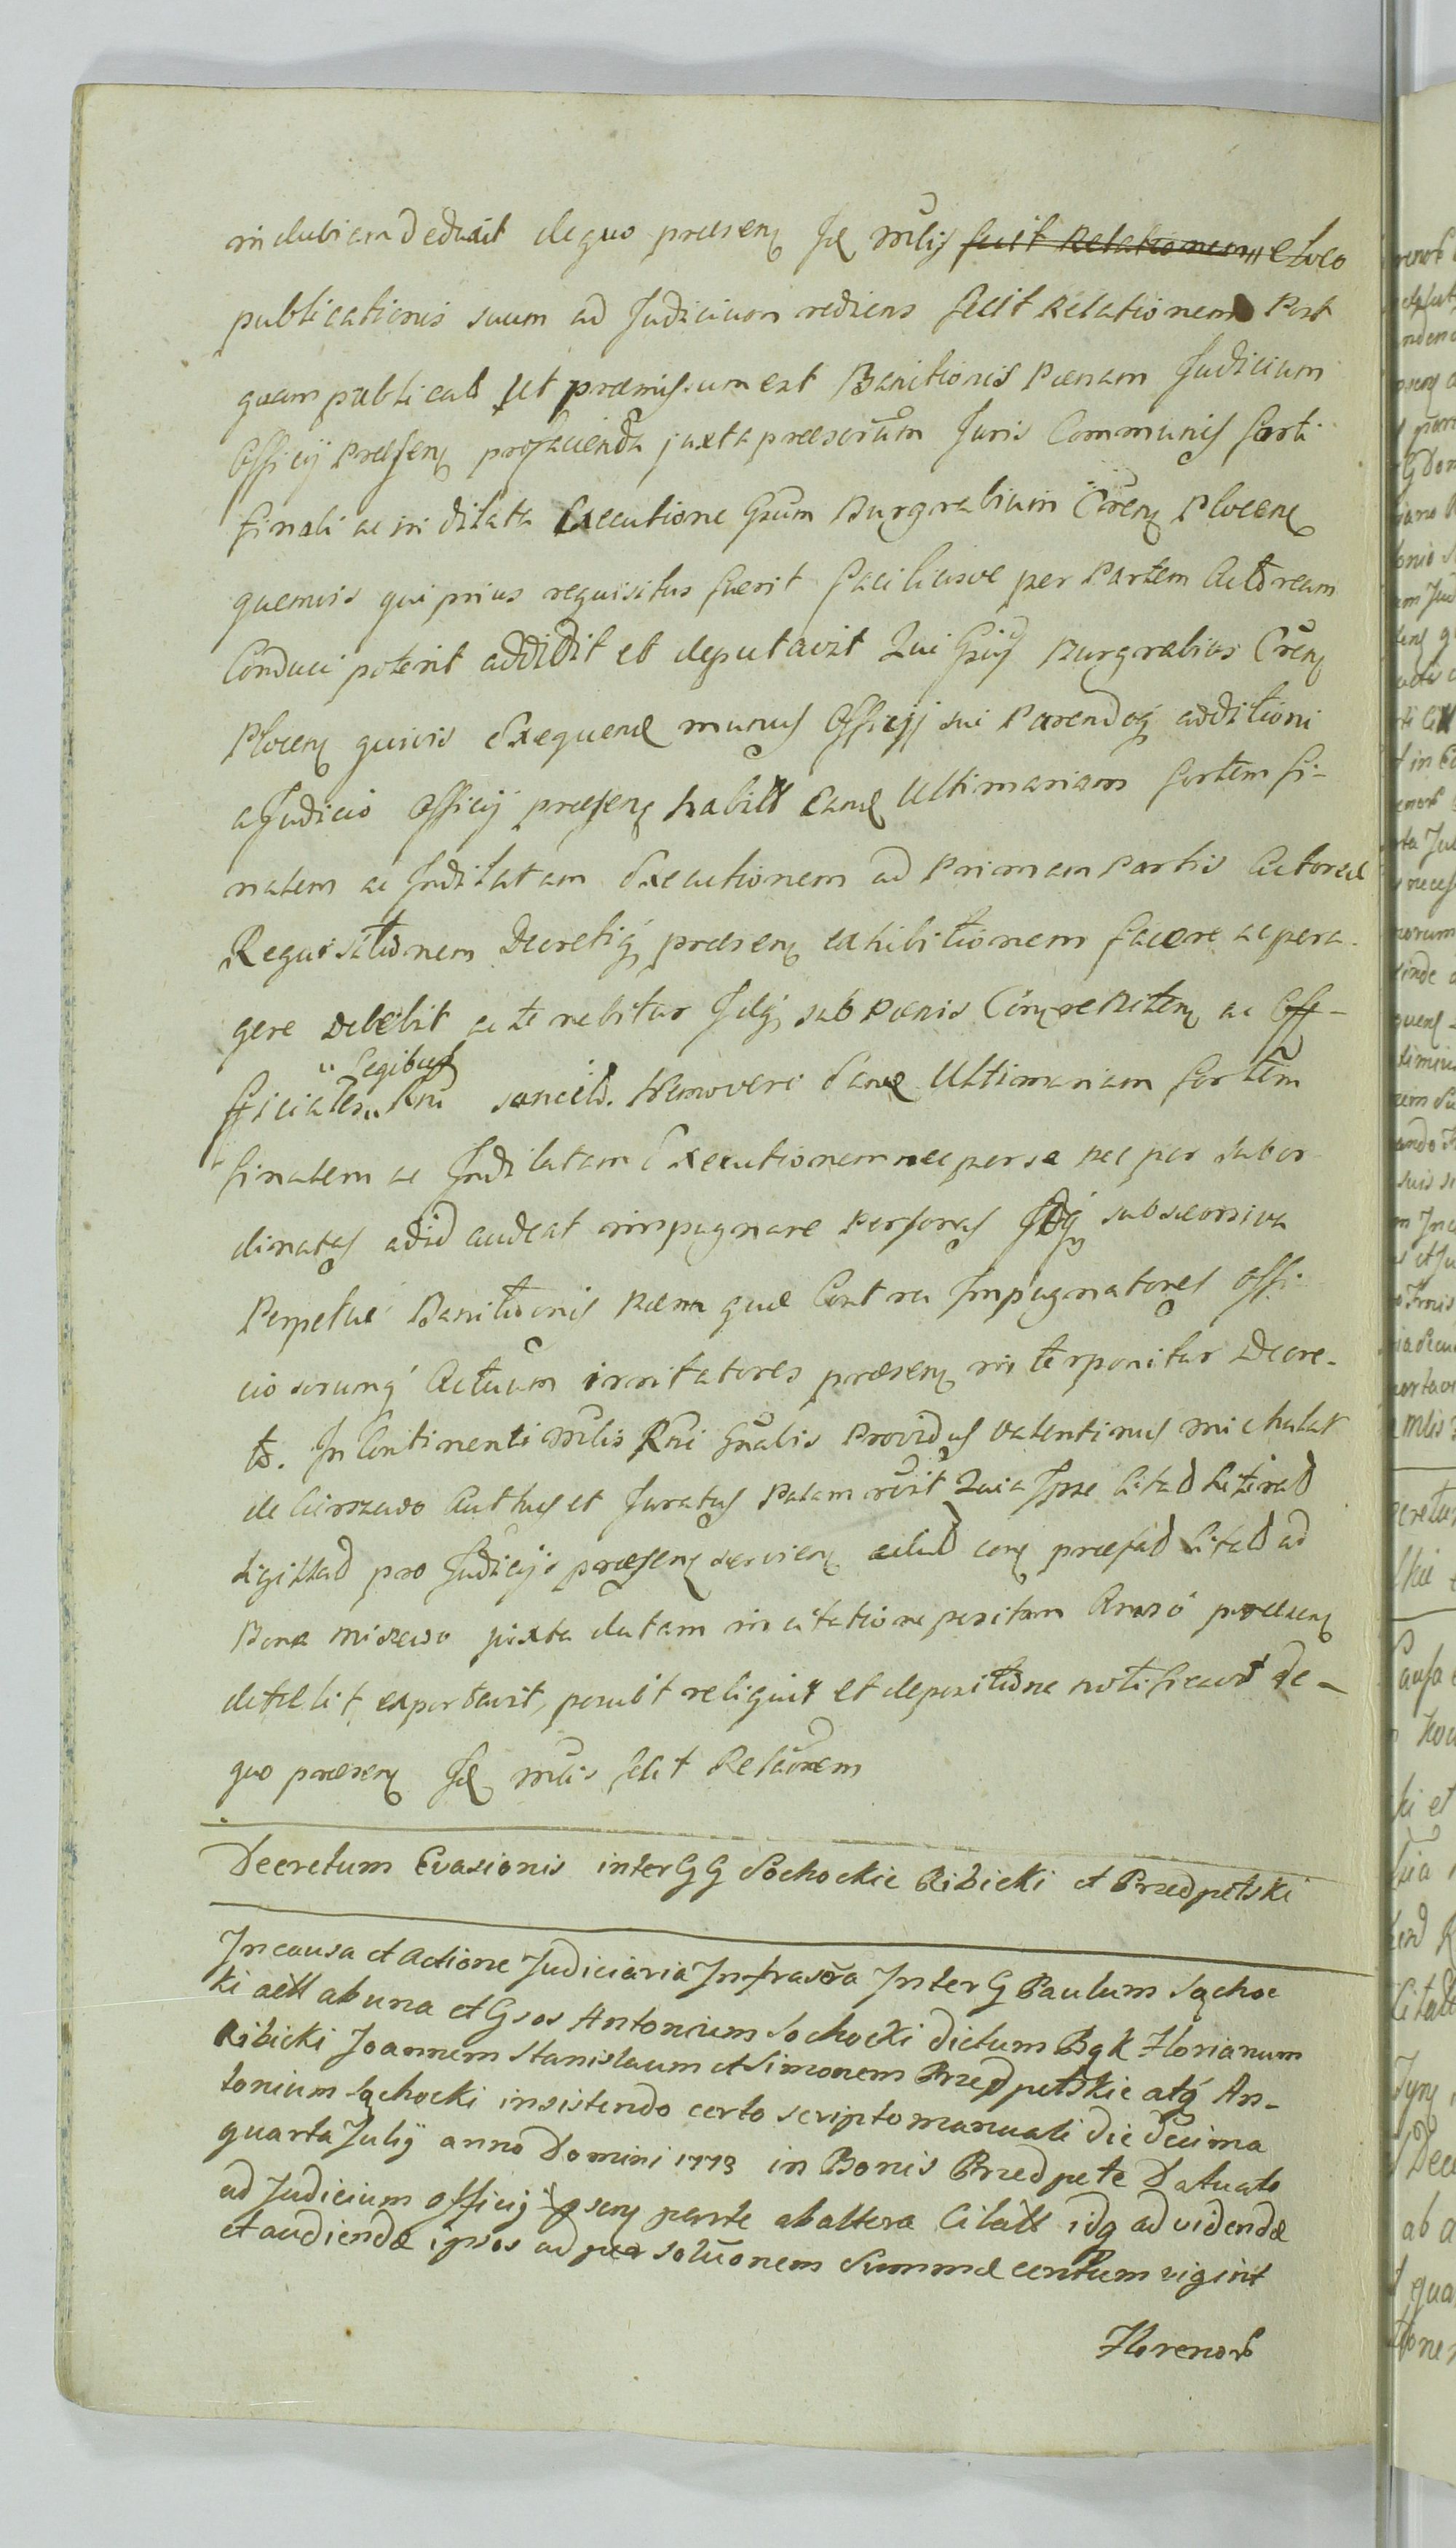 in dubiam deduxit de quo praesen Jd mlis fecit Relationem e Loco
publicationis suum ad Judicium rediens fecit Relationem Post
quam publicat ut praemissum est Banitionis Paenam Judicium
Officij Praesen pro facienda juxta praescrum Juris Communis forti
finali ac in dilata Executione Gsum Burgrabium Cĩren Plocen
quemvis qui prius requisitus fuerit faciliusve per Partem Actoream
Conduci poterit addidit et deputavit Qui Gsus Burgrabius Cren
Plocen quivis Exequend munus Officij sui Parendoq additioni
a Judicio Officij praesen habitt Eand Ultimariam fortem fi-
nalem ac Indilatam Executionem ad Primam Partis Actoreae
Requisitionem Decretiq praesen exhibitionem facere ac pera-
gere Debebit ac tenebitur Idq sub Paenis ac Off-
" Legibus
ficiales " Rni sancit. Removeri Eand Ultimariam fortem
finalem ac Indilatam Executionem nec per se nec per subor
dinatas ad id audeat impugnare Personas Idq sub
Perpetuae Banitionis Paena quae Contra Impugnatores Offi-
ciosorumq Actuum irritatores praesen interponitur Decre-
to. In Continenti mlis Rni Gnalis Providus Valentinus Michalak
de Authus et Juratus Palam Quia Ipse Citad Literad
Sigillad pro Judicijs praesen servien praefad Citad ad
Bona Miszewo juxta datam in citatione positam praesen
detulit exportavit, posuit reliquit et depositione notificavit de-
quo praesen Jd mlis fecit Relaonem
Decretum Evasionis inter GG Sochockie Ribicki et Przedpetski
In causa et Actione Judiciaria Infrascra Inter G Paulum Sąchoc
ki act ab una et Gsos Antonium Sochocki dictum Bąk Florianum
Ribicki Joannem Stanislaum et Simonem Przedpetskie atq An-
tonium Sąchocki insistendo certo scripto manuali die decima
quarta Julij anno Domini 1773 in Bonis Przedpete Datuato
ad Judicium officij psen parte ab altera Citatt idq ad videndae
et audiendae ipsos ad solũonem Summae centum vigint
Florenor